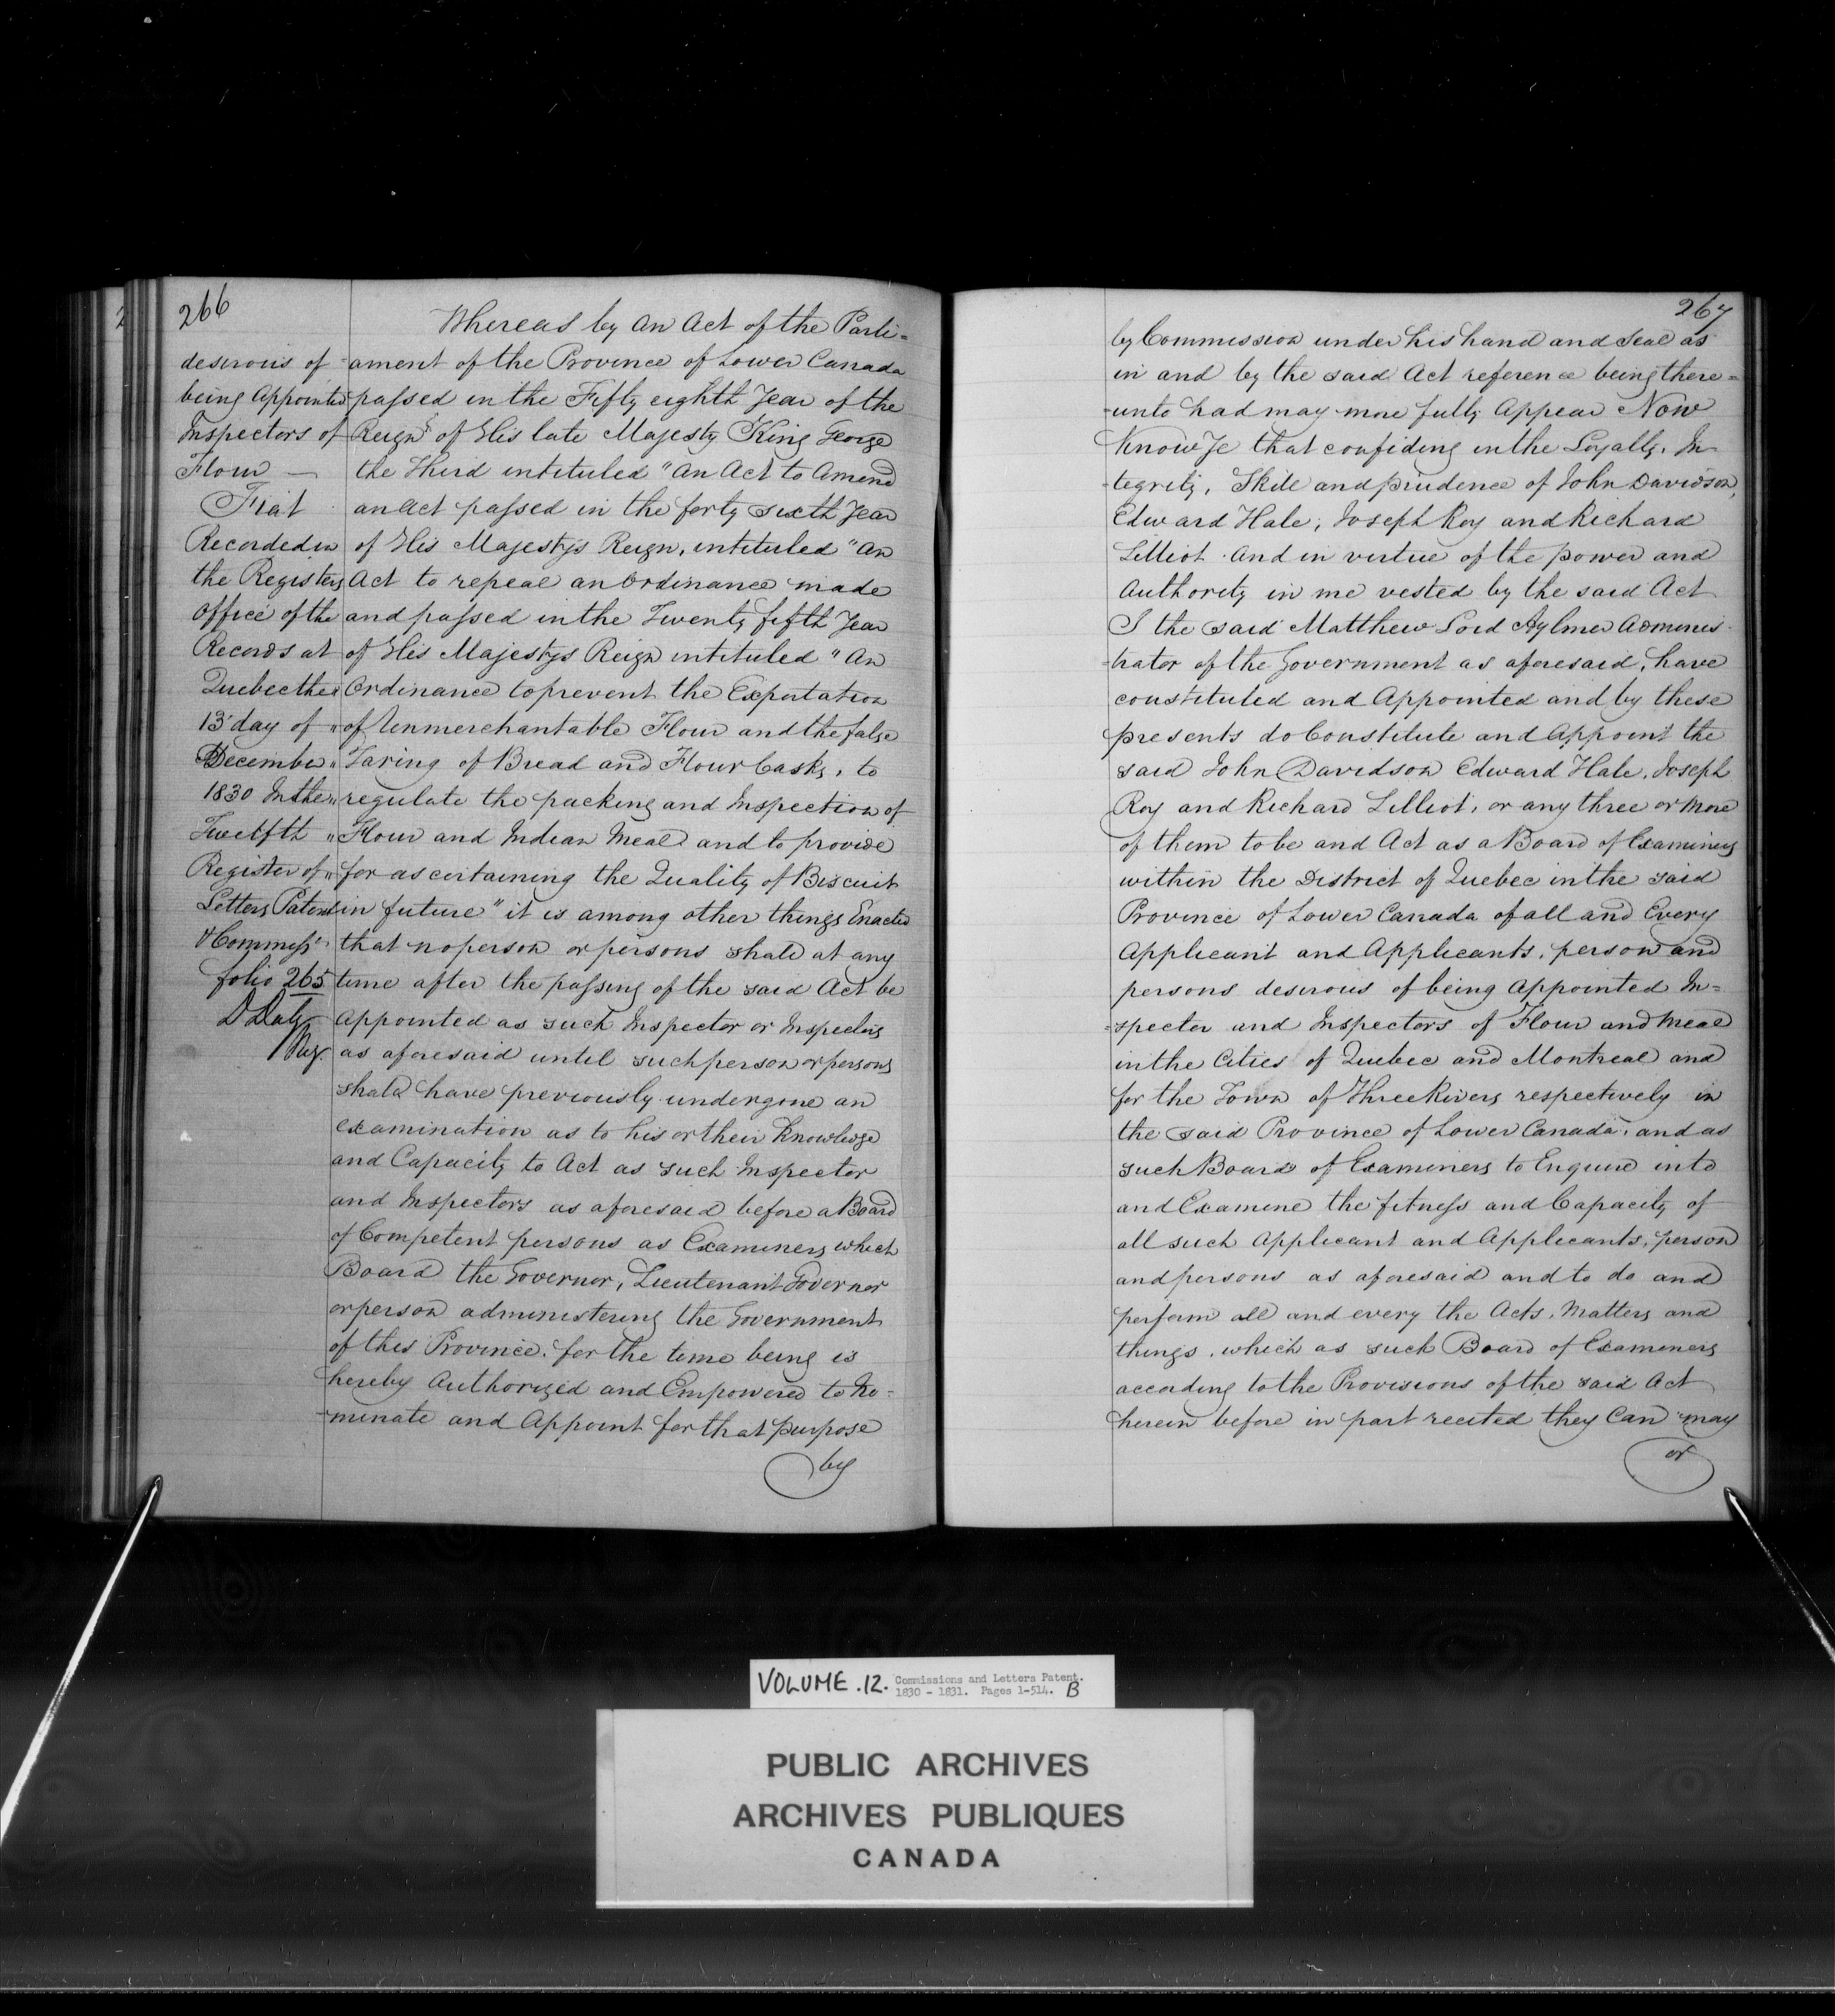 266
desirous of
being Appointed
Inspectors of
Flour —
Fiat
Recorded in
the Registers
Office of the
Records at
Quebec the
13 day of
December
1830 In the
Twelfth
Register of
Letters Patent
& Commissns
folio 265
D Daly
Reg.
Whereas by An Act of the Parli-
-ament of the Province of Lower Canada
passed in the Fifty eighth Year of the
Reign of His late Majesty King George
the Third intituled "An Act to Amend
an Act passed in the forty sixth Year
of His Majestys Reign, intituled "An
Act to repeal an Ordinance made
and passed in the Twenty fifth Year
of His Majestys Reign intituled "An
" Ordinance to prevent the Exportation
" of Unmerchantable Flour and the false
" Taring of Bread and Flour Casks, to
" regulate the packing and Inspection of
" Flour and Indian Meal and to provide
" for ascertaining the Quality of Biscuit
in future" it is among other things Enacted
that no person or persons shall at any
time after the passing of the said Act be
appointed as such Inspector or Inspectors
as aforesaid until such person or persons
shall have previously undergone an
examination as to his or their Knowledge
and Capacity to Act as such Inspector
and Inspectors as aforesaid before a Board
of Competent persons as Examiners which
Board the Governor, Lieutenant Governor
or person administering the Government
of this Province, for the time being is
hereby Authorized and Empowered to No-
-minate and Appoint for that purpose
by
267
by Commission under his hand and Seal as
in and by the said Act reference being there=
-unto had may more fully Appear Now
Know Ye that confiding in the Loyalty, In
-tegrity, Skill and prudence of John Davidson,
Edward Hale, Joseph Roy and Richard
Lilliot. And in virtue of the power and
Authority in me vested by the said Act
I the said Matthew Lord Aylmer Adminis-
-trator of the Government as aforesaid, have
constituted and Appointed and by these
presents do Constitute and Appoint the
said John Davidson Edward Hale, Joseph
Roy and Richard Lilliot, or any three or More
of them to be and Act as a Board of Examiners
within the District of Quebec in the said
Province of Lower Canada of all and Every
Applicant and Applicants, person and
persons desirous of being Appointed In=
-spector and Inspectors of Flour and Meal
in the Cities of Quebec and Montreal and
for the Town of Three Rivers respectively in
the said Province of Lower Canada, and as
such Board of Examiners to Enquire into
and Examine the fitness and Capacity of
all such Applicant and Applicants, person
and persons as aforesaid and to do and
perform all and every the Acts, Matters and
things, which as such Board of Examiners
according to the Provisions of the said Act
herein before in part recited they Can may
or
VOLUME .12. Commissions and Letters Patent.
1830 - 1831. Pages 1-514. B
PUBLIC ARCHIVES
ARCHIVES PUBLIQUES
CANADA